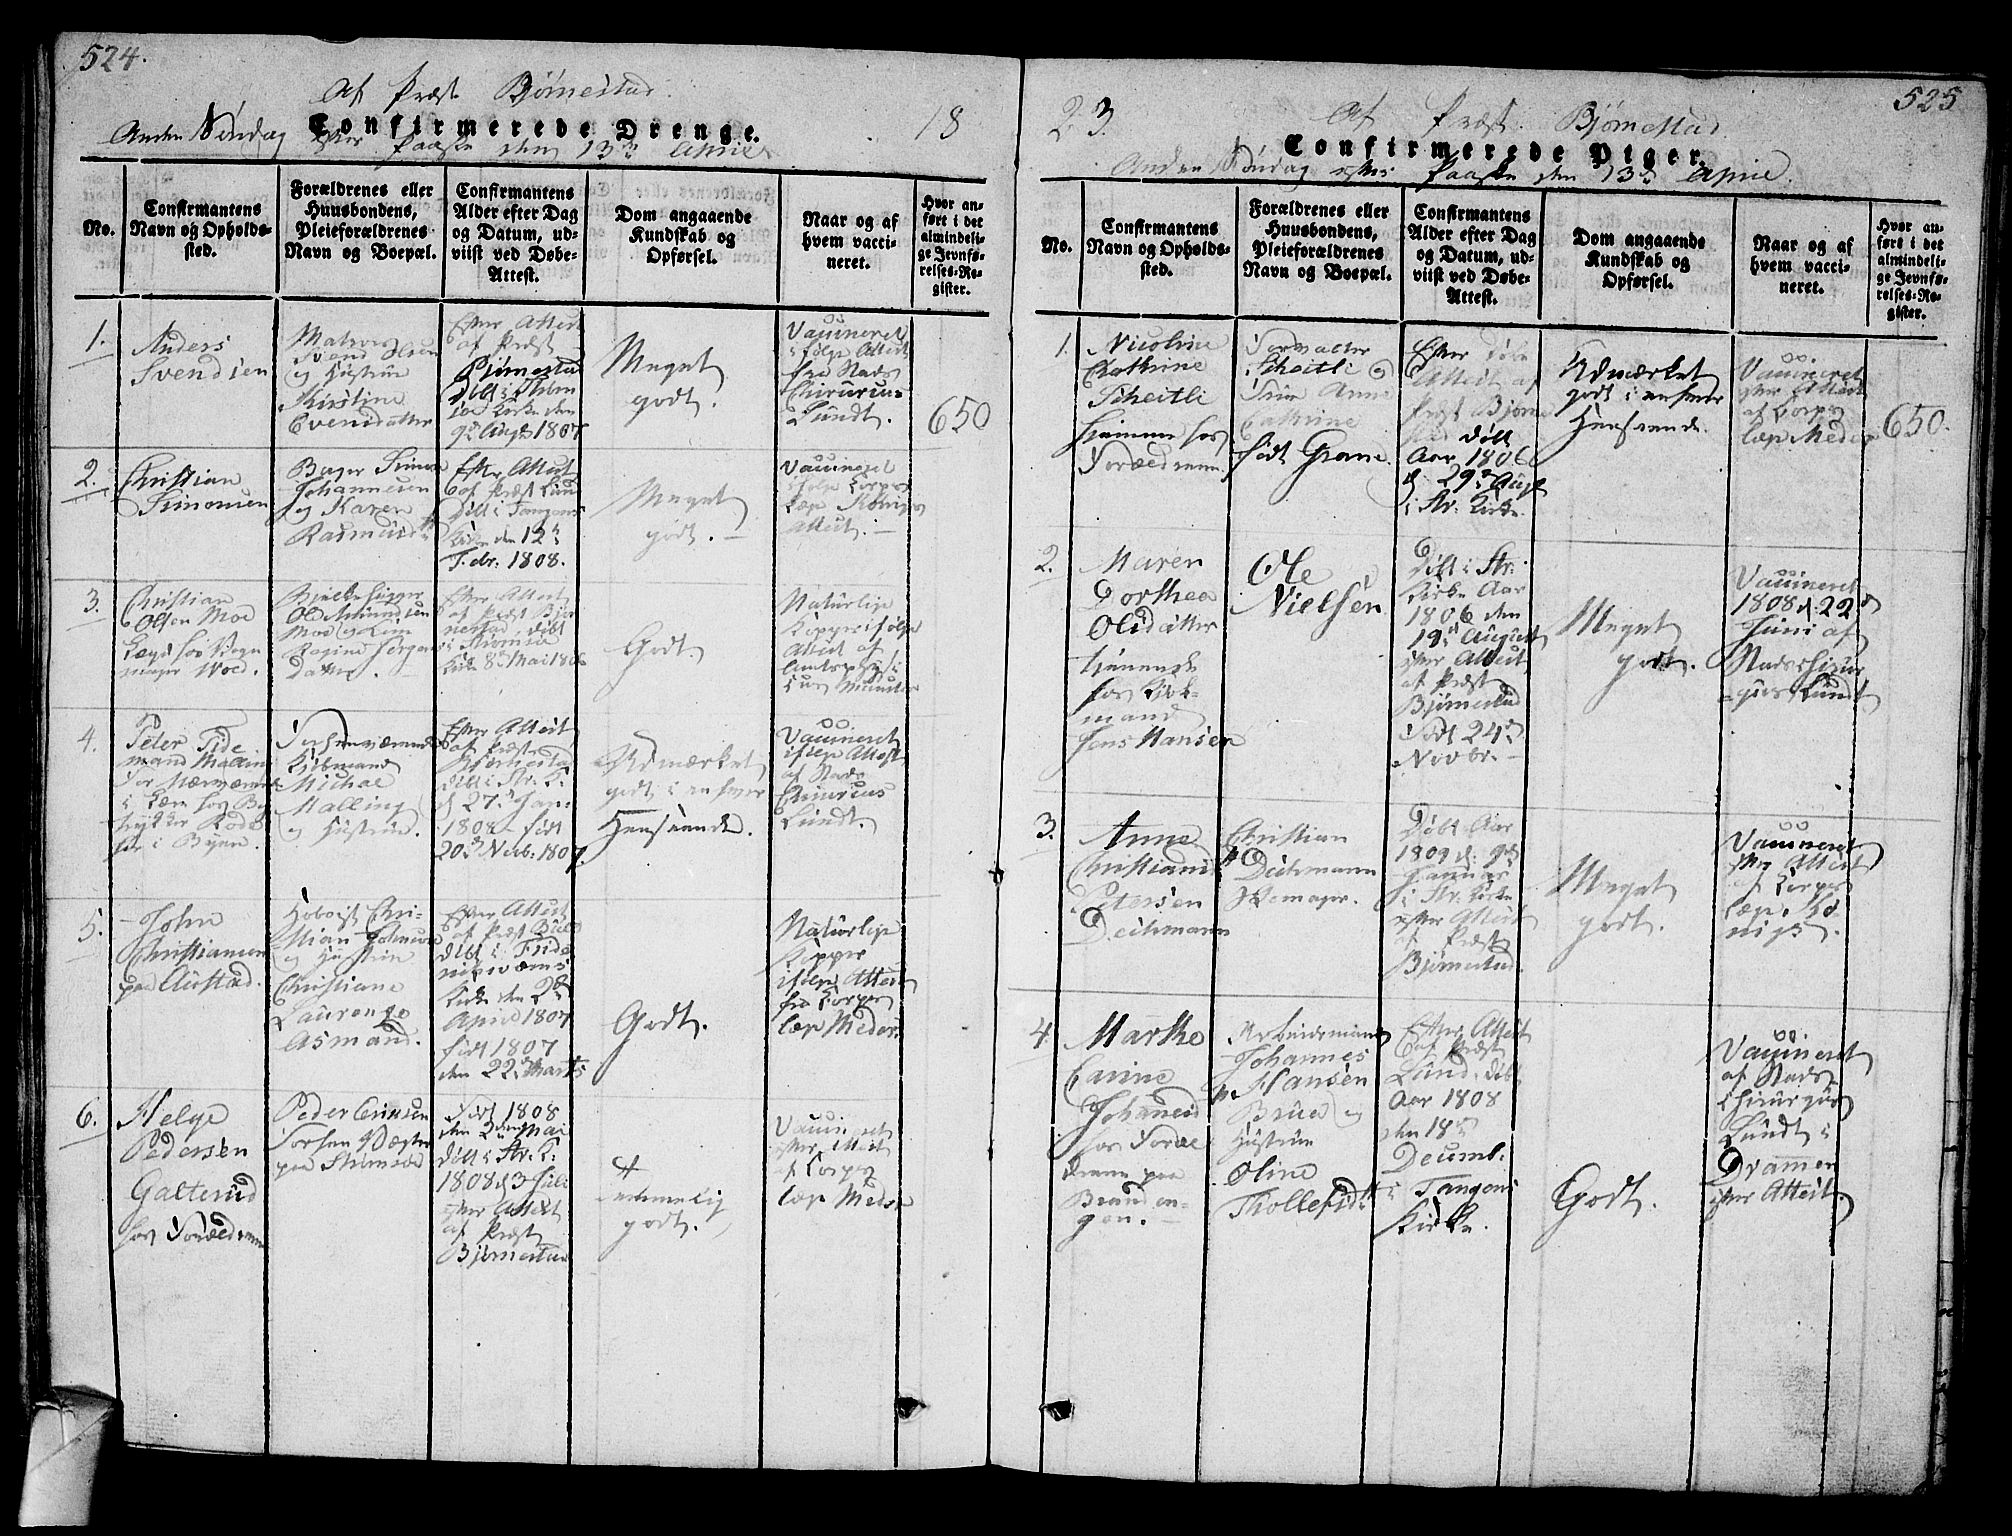 524.
Af Præst Bjørnestad
Confirmerede Drenge.
18
Anden Söndag efter Paaske den 13de April
No.
Confirmantens
Navn og Opholds-
sted.
Forældrenes eller
Huusbondens,
Pleieforældrenes
Navn og Boepæl.
Confirmantens
Alder efter Dag
og Datum, ud-
viist ved Døbe-
Attest.
Dom angaaende
Kundskab og
Opførsel.
Naar og af
hvem vacci-
neret.
Hvor an-
ført i det
almindeli-
ge Jevnfø-
relses-Re-
gister.
1.
Anders
Svendsen
Matros
Svend Olsen
og Hustrue
Kirstine
Evensdatter
Efter Attest
af Præst
Bjørnestad
Döbt i Strøm
söe Kirke den
9de Augt 1807
Meget
godt.
Vaccineret
ifølge Attest
fra Stads
Chirurus
Lundt.
650
2.
Christian
Simonsen
Bager Simon
Johannesen
og Karen
Rasmusd
Efter Attest
af Præst Lund
Döbt i Tangens
Kirke den 12te
Febr. 1808.
Meget
godt.
Vaccineret
ifølge Corps
læge Königs
Attest.
3.
Christian
Olsen Moe
Lægd hos Vogn
mager Moe.
Ole Amundsen
Moe og
Jörgens
Datter.
Efter Attest
af Præst Bjør
nestad, döbt
i Strømsöe
Kirke 8de Mai 1806
Godt.
Naturlige
Kopper ifølge
Attest af
Amtsphys:
Münster
4.
Peter Tide
mand Malling
for Nærværende
i Lære hos Bog
trykker
i Byen.
Forhenværende
Kiöbmand
Michael
Malling
og Hustrue.
Efter Attest
af Præst
Bjørnestad
döbt i Str. K.
d. 27de Jan.
1808 födt
20de Novb. 1807.
Udmærket
godt i enhver
Henseende.
Vaccineret
ifølge Attest
af Stads
Chirurus
Lundt.
5.
John
Christiansen
paa Austad.
Hoboist Chri-
stian Johnsen
og Hustrue
Christiane
Laurense
Asmand.
Efter Attest
af Præst
döbt i Fride
riksværns
Kirke den 2de
April 1807
födt 1807
den 22de Marts
Godt.
Naturlige
Kopper
ifølge Attest
fra Corps
læge Meder.
6.
Helge
Pedersen
Galterud
hos Forældrene
Peder Erichsen
paa Strømsöe
Födt 1808
den 3die Mai
döbt i Str. K.
1808 d. 3 Juli
efter Attest
af Præst
Bjørnestad
temmelig
godt.
Vaccineret
efter Attest
af Corps
læge Meder
23.
525
Af Præst Bjørnestad
Confirmerede Piger.
Anden Söndag efter Paaske den 13de April.
No.
Confirmantens
Navn og Opholds-
sted.
Forældrenes eller
Huusbondens,
Pleieforældrenes
Navn og Boepæl.
Confirmantens
Alder efter Dag
og Datum, ud-
viist ved Døbe-
Attest.
Dom angaaende
Kundskab og
Opførsel.
Naar og af
hvem vacci-
neret.
Hvor an-
ført i det
almindeli-
ge Jevnfø-
relses-Re-
gister.
1.
Nicoline
Cathrine
Scheitli
hjemme hos
Forældrene.
Forvalter
Scheitli og
Frue Anne
Cathrine
födt Grane.
Efter Döbe
Attest af
Præst Bjørne
stad döbt
Aar 1806
d. 29de Augt
i Str. Kirke.
Udmærket
godt i enhver
Henseende.
Vaccineret
efter Attest
af Corps
læge Meder
650.
2.
Maren
Dorthea
Olsdatter
tjenende
hos Kiøb-
mand
Jens Hansen
Ole
Nielsen
Döbt i Str.
Kirke Aar
1806 den
19de August
efter Attest
af Præst
Bjørnestad
Födt 24de
Novbr.
Meget
godt.
Vaccineret
1808 d. 22de
Juni af
Stadschirur-
gus Lundt
3.
Anne
Christiane
Petersen
Deihmann
Christian
P. Deihmann
Döbt Aar
1809 d. 9de
Januar
i Str. Kirke
efter Attest
af Præst
Bjørnestad.
Meget
godt.
Vaccineret
efter Attest
af Corps
læge Kö
nigs.
4.
Marthe
Carine
Johannesd
hos Foræl
drene paa
Brand en-
gen.
Arbeidsmand
Johannes
Hansen
Brue og
Hustrue
Oline
Thollefsdt
Efter Attest
af Præst
Lund, döbt
Aar 1808
den 18de
Decemb.
i Tangens
Kirke.
Godt.
Vaccineret
af Stads
Chirurgus
Lundt i
Drammen
efter Attest.